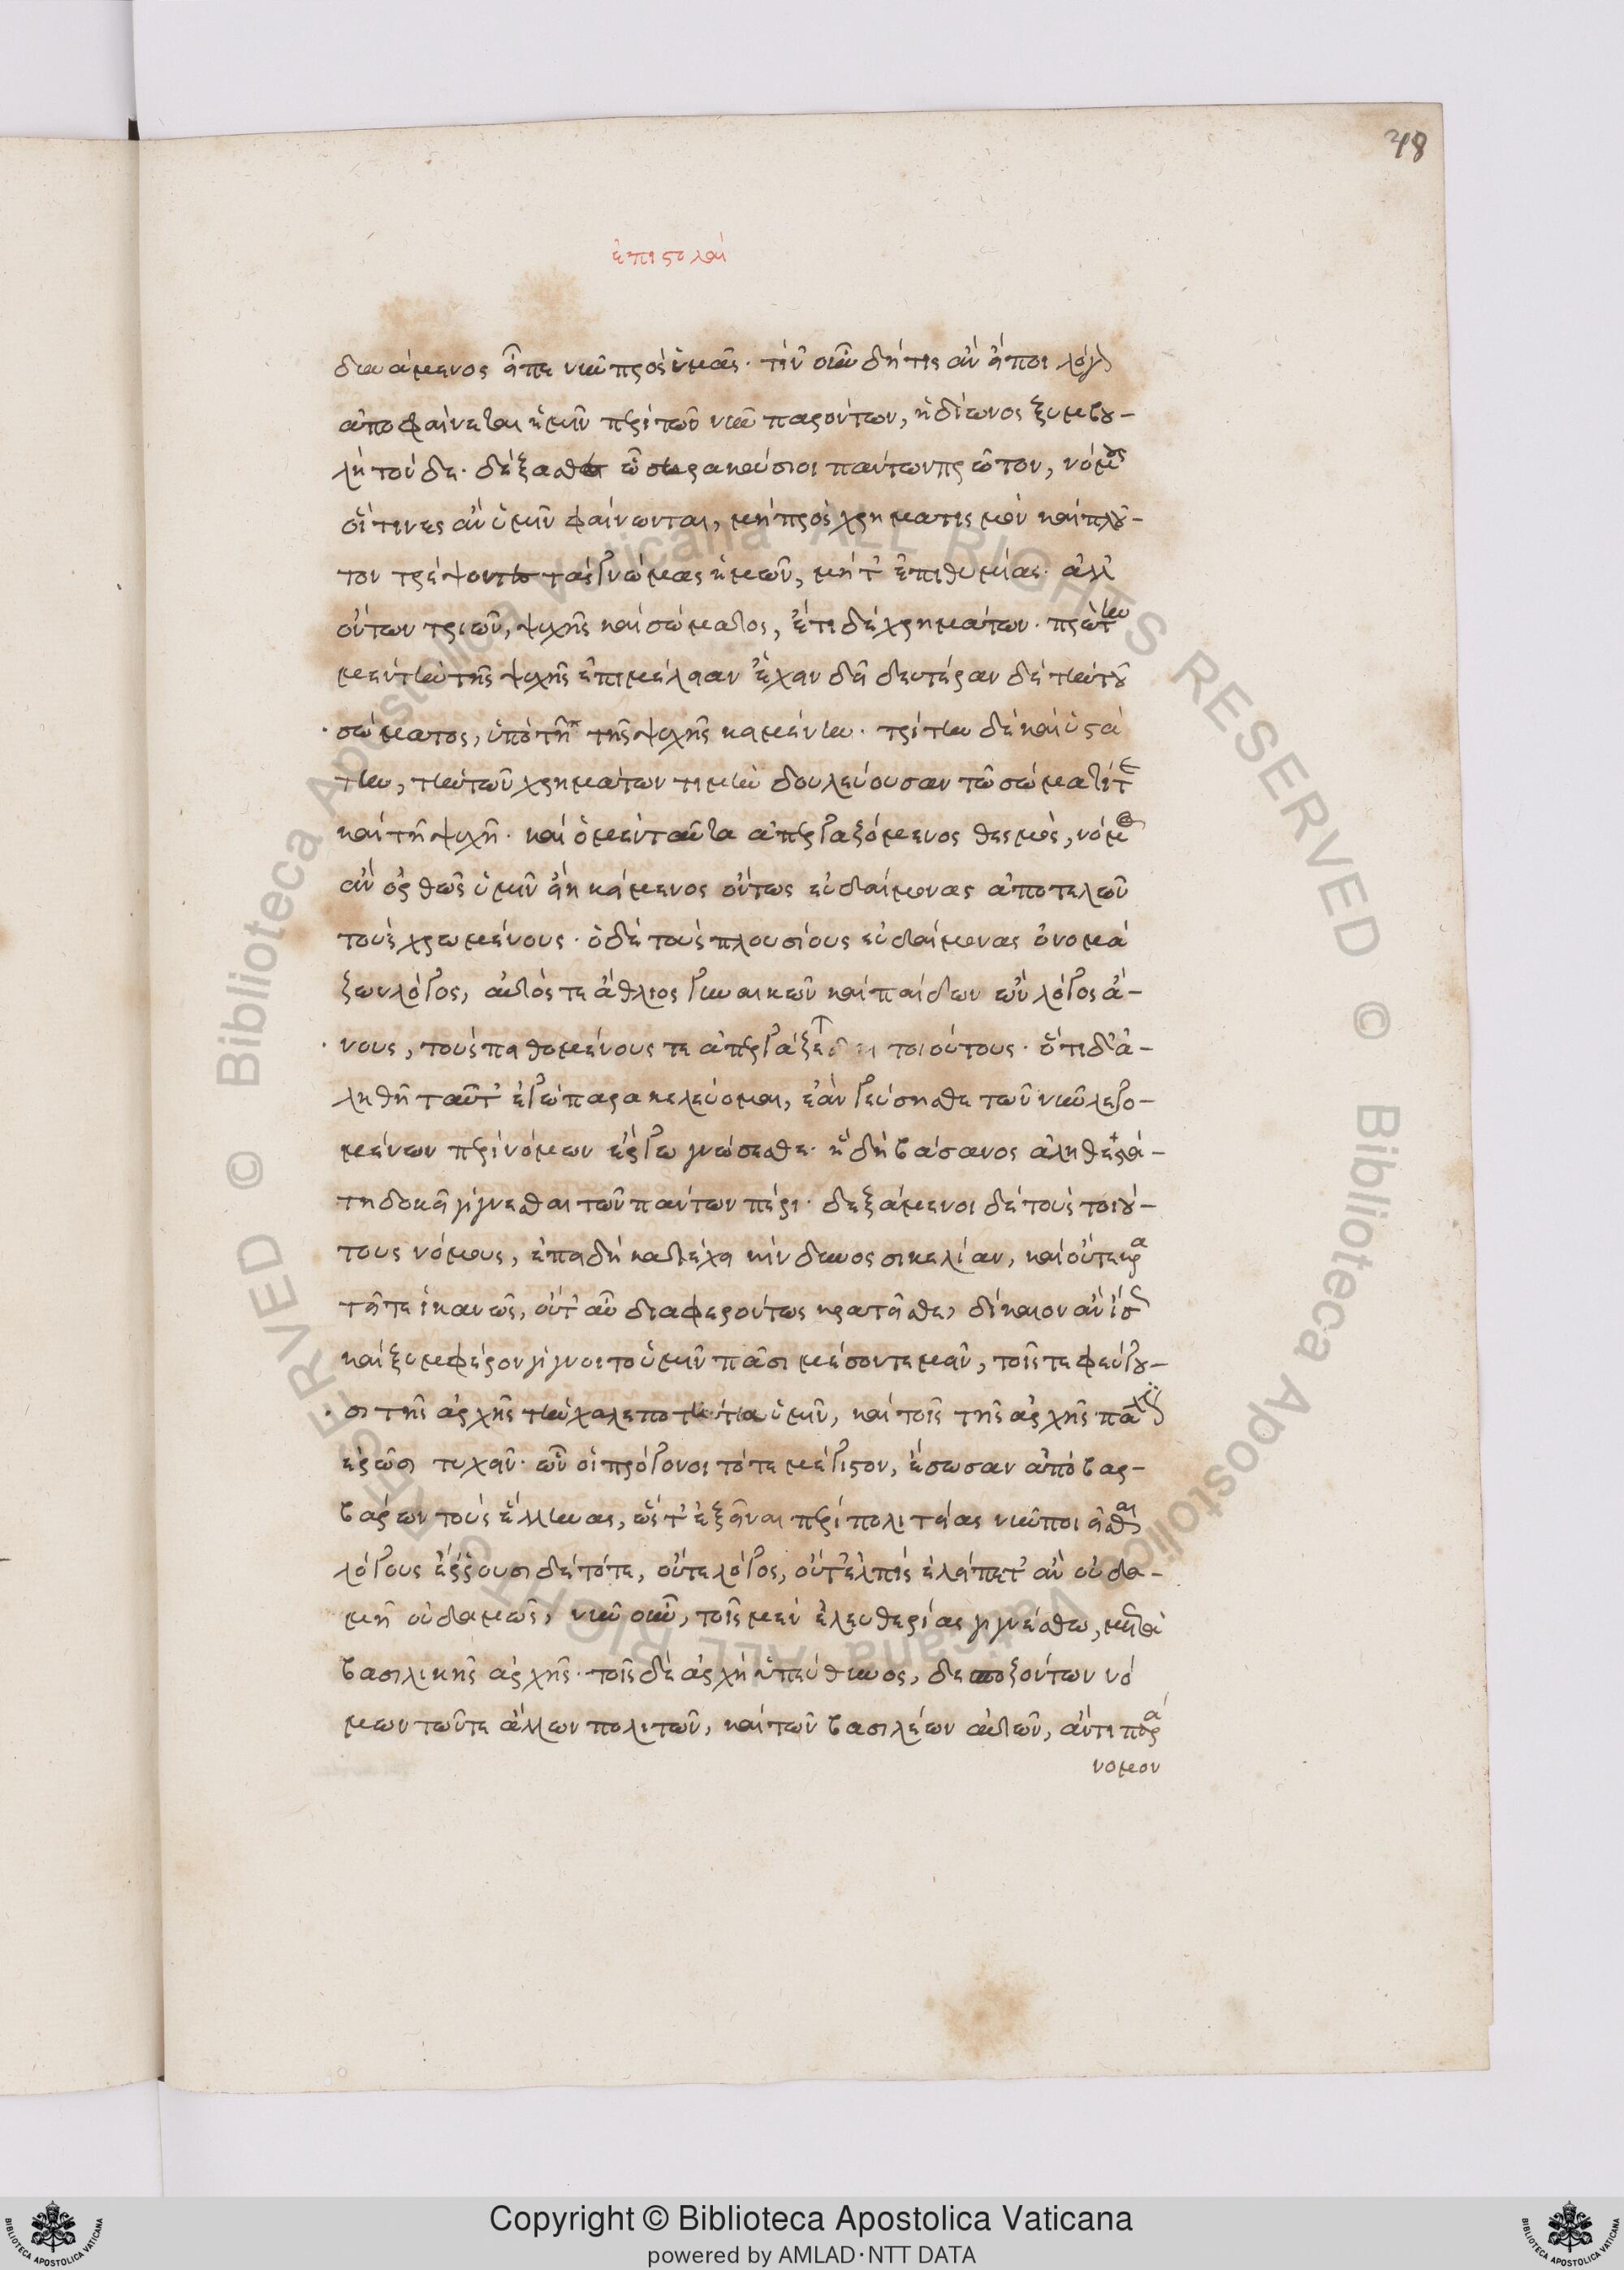 48
ἐπιστολαί
δυνάμενος εἶπε νῦν πρὸς ὑμᾶς· τίν' οὖν δή τις ἂν εἴποι λόγον
ἀποφαίνεται ἡμῖν περὶ τῶν νῦν παρόντων, ἡ δίωνος ξυμβου-
λή τόνδε· δέξασθε ὦ συρακούσιοι πάντων πρῶτον, νόμους
οἵτινες ἂν ὑμῖν φαίνωνται, μὴ πρὸς χρηματισμὸν καὶ πλοῦ-
τον τρέψοντες τὰς γνώμας ἡμῶν, μήτ' ἐπιθυμίας· ἀλλ'
ὄντων τριῶν, ψυχῆς καὶ σώματος, ἔτι δὲ χρημάτων· πρώτην
μὲν τὴν τῆς ψυχῆς ἐπιμέλειαν ἔχειν δεῖ δευτέραν δὲ τὴν τοῦ
σώματος, ὑπὸ τῇ τῆς ψυχῆς κειμένην· τρίτην δὲ καὶ ὑστά
την, τὴν τῶν χρημάτων τιμὴν δουλεύουσαν τῷ σώματί τε
καὶ τῇ ψυχῇ· καὶ ὁ μὲν ταῦτα ἀπεργαζόμενος θεσμὸς, νόμος
ἂν ὀρθῶς ὑμῖν εἴη κείμενος ὄντως εὐδαίμονας ἀποτελῶν
τοὺς χρωμένους· ὁ δὲ τοὺς πλουσίους εὐδαίμονας ὀνομά
ζων λόγος, αὐτός τε ἄθλιος γυναικῶν καὶ παίδων ὢν λόγος ἄ-
νους, τοὺς πειθομένους τε ἀπεργάζεται τοιούτους· ὅτι δ' ἀ-
ληθῆ ταῦτ' ἐγὼ παρακελεύομαι, ἐὰν γεύσησθε τῶν νῦν λεγο-
μένων περὶ νόμων ἔργῳ γνώσεσθε· ἣ δὴ βάσανος ἀληθεστά-
τη δοκεῖ γίγνεσθαι τῶν πάντων πέρι· δεξάμενοι δὲ τοὺς τοιού-
τους νόμους, ἐπειδὴ κατέχει κίνδυνος σικελίαν, καὶ οὔτε κρα
τεῖτε ἱκανῶς, οὔτ' αὖ διαφερόντως κρατεῖσθε, δίκαιον ἂν ἴσως
καὶ ξυμφέρον γίγνοιτο ὑμῖν πᾶσι μέσον τεμεῖν, τοῖς τε φεύγου-
σι τῆς ἀρχῆς τὴν χαλεπότητα ὑμῖν, καὶ τοῖς τῆς ἀρχῆς πάλιν
ἐρῶσι τυχεῖν· ὧν οἱ πρόγονοι τότε μέγιστον, ἔσωσαν ἀπὸ βαρ-
βάρων τοὺς ἕλληνας, ὥστ' ἐξεῖναι περὶ πολιτείας νῦν ποιεῖσθαι
λόγους ἔρρουσι δὲ τότε, οὔτε λόγος, οὔτ' ἐλπὶς ἐλείπετ' ἂν οὐδα-
μῇ οὐδαμῶς, νῦν οὖν, τοῖς μὲν ἐλευθερίας γιγνέσθω, μετὰ
βασιλικῆς ἀρχῆς· τοῖς δὲ ἀρχὴ ὑπεύθυνος, δεσποζόντων νό
μων τῶν τε ἄλλων πολιτῶν, καὶ τῶν βασιλέων αὐτῶν, ἄν τι παρά
νομον
Copyright © Biblioteca Apostolica Vaticana
powered by AMLAD·NTT DATA